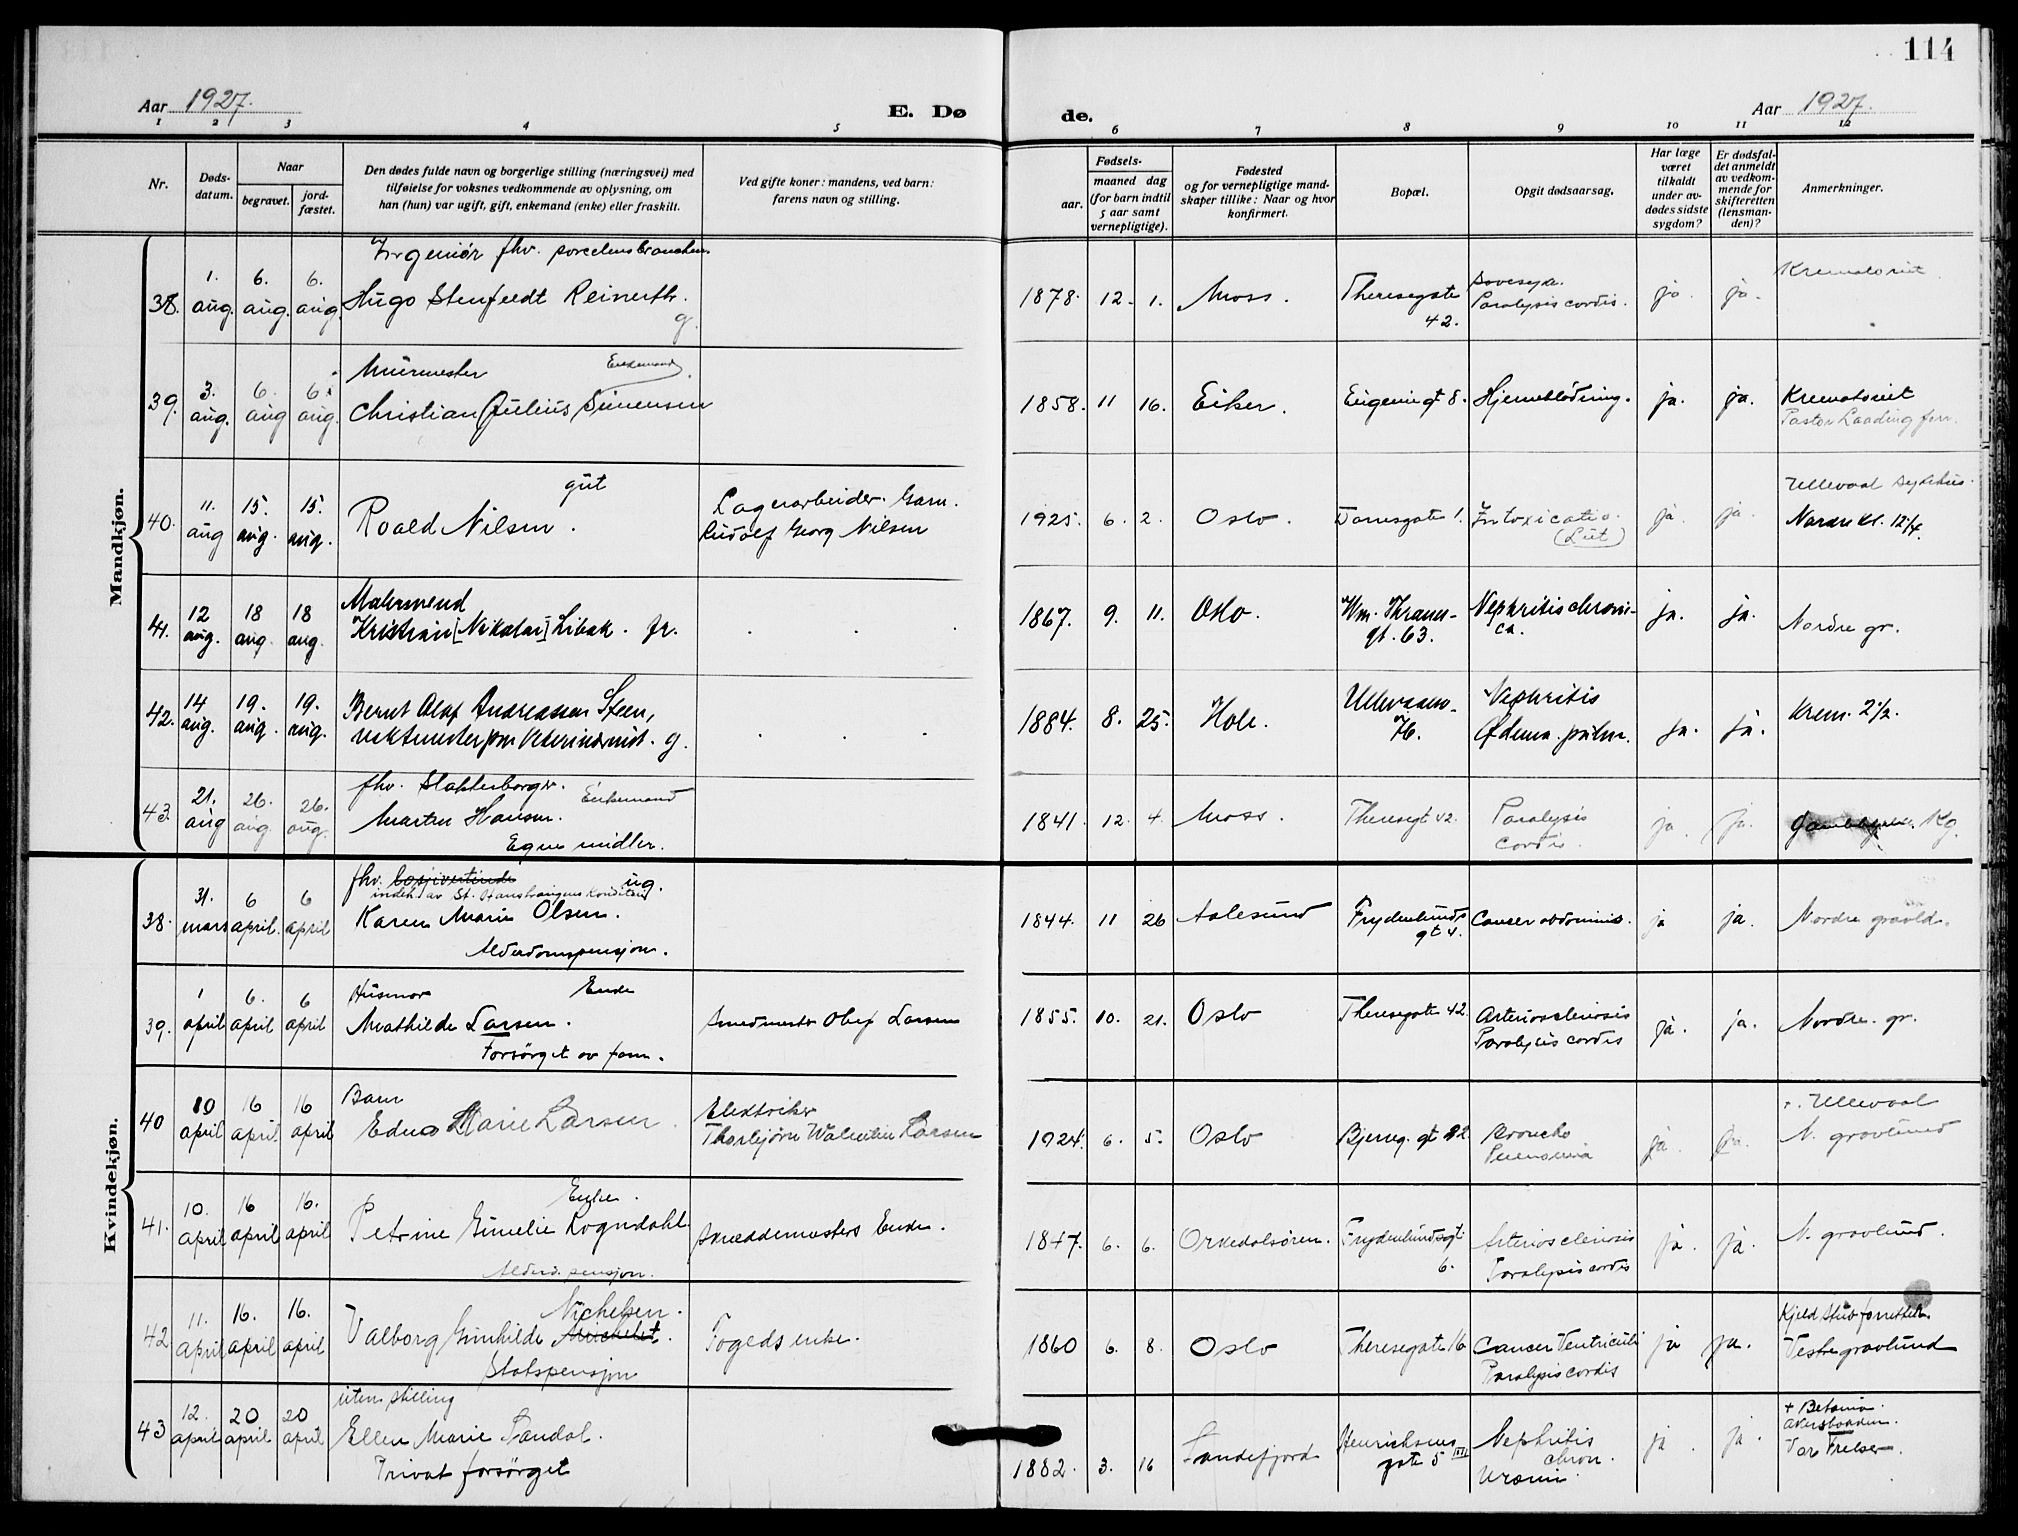 114
Aar 1927.
E. Døde.
Aar 1927.
1 2 3 4 5 6 7 8 9 10 11 12
Nr.
Døds-
datum.
Naar
begravet.
jord-
fæstet.
Den dødes fulde navn og borgerlige stilling (næringsvei) med
tilføielse for voksnes vedkommende av oplysning, om
han (hun) var ugift, gift, enkemand (enke) eller fraskilt.
Ved gifte koner: mandens, ved barn:
farens navn og stilling.
Fødsels-
aar.
maaned dag
(for barn indtil
5 aar samt
vernepligtige).
Fødested
og for vernepligtige mand-
skaper tillike: Naar og hvor
konfirmert.
Bopæl.
Opgit dødsaarsag.
Har læge
været
tilkaldt
under av-
dødes sidste
sygdom?
Er dødsfal-
det anmeldt
av vedkom-
mende for
skifteretten
(lensman-
den)?
Anmerkninger.
Mandkjøn.
Ingeniør fhv. porcelensbranchen.
38. 1. aug. 6. aug. 6. aug. Hugo Reinerth. g.
1878. 12. 1. Moss. Theresegate 42. Paralysis cordis. ja. ja. Krematoriet
Murmester Enkemand
39. 3. aug. 6. aug 6. aug. Christian Julius Simensen
1858. 11 16. Eiker. Eugeniegt 8. Hjerneblödning. ja. ja. Krematoriet
Pastor Laading forr.
gut
40. 11. aug 15. aug. 15. aug. Roald Nilsen. Lagerarbeider. Garn.
Rudolf Georg Nilsen
1925. 6. 2. Oslo. 1. Intoxicatio.
(Lut) ja. ja. Ullevaal sykehus.
Nordre kl. 12
41. 12 aug. 18 aug. 18 aug. Malermend
Kristian [Nikolai] Libak. fr.
1867. 9. 11. Oslo. Wm. Thranes-
gt. 63. Nephritis chroni-
ca. ja. ja. Nordre gr.
42. 14 aug. 19. aug. 19. aug. Bernt Olaf Andreassen Steen,
g.
1884. 8. 25. Hole. Nephritis
Ødema. pulm. ja. ja. Krem. 2½.
fhv. Slakterborger.
43. 21. aug 26. aug. 26. aug. Martin Hansen. Enkemand
Egne midler.
1841. 12. 4. Moss. Theresegt 42. Paralysis
cordis. ja. ja.
Kvindekjøn.
fhv. losjivertinde ug.
indeh. av St. Hanshaugens Konditori
38. 31. mars 6 april. 6 april Karen Marie Olsen.
Alderdomspensjon.
1844. 11 26 Aalesund Frydenlunds
gt 4. Cancer abdominis. ja ja. Nordre gravld.
Husmor Enke
39. 1 april 6. april 6 april Mathilde Larsen. Smedmester Olaf Larsen
Forsörget av fam.
1855. 10. 21. Oslo Theresegate 42. Arteriosclerosis
Paralysis cordis ja. ja. Nordre. gr.
Barn
40 10 april 16 april. 16 april Edna Marie Larsen. Elektriker
Thorbjörn Walentin Larsen
1924. 6. 5. Oslo Bjerreg. gt Broncho
Pneumonia ja. ja. Ullevaal
N. gravlund
Enke.
41. 10. april 16 april 16. april Petrine Emelie Rogndahl Skræddermesters Enke.
Alderd. pensjon.
1847. 6. 6. Orkedalsören. Frydenlundsgt.
6. Arteriosclerosis
Paralysis cordis ja. ja. N. gravlund.
42 11. April 16. april 16. april Valborg Gunhilde Michelet. Nichelsen. Fogeds enke.
Statspensjon
1860 6. 8. Oslo Theresegate 16 Cancer Ventriculi
Paralysis cordis ja ja. Kjeld Stub forrettet
Vestre gravlund
uten stilling
43 12. april 20 april 20 april Ellen Marie Sandal.
Privat forsörget
1882. 3. 16 Sandefjord Henrichsens
gate 5 III Nephritis
chron.
Uræmi. ja. ja. + Betania.
Akersbakken.
Vor Frelser.